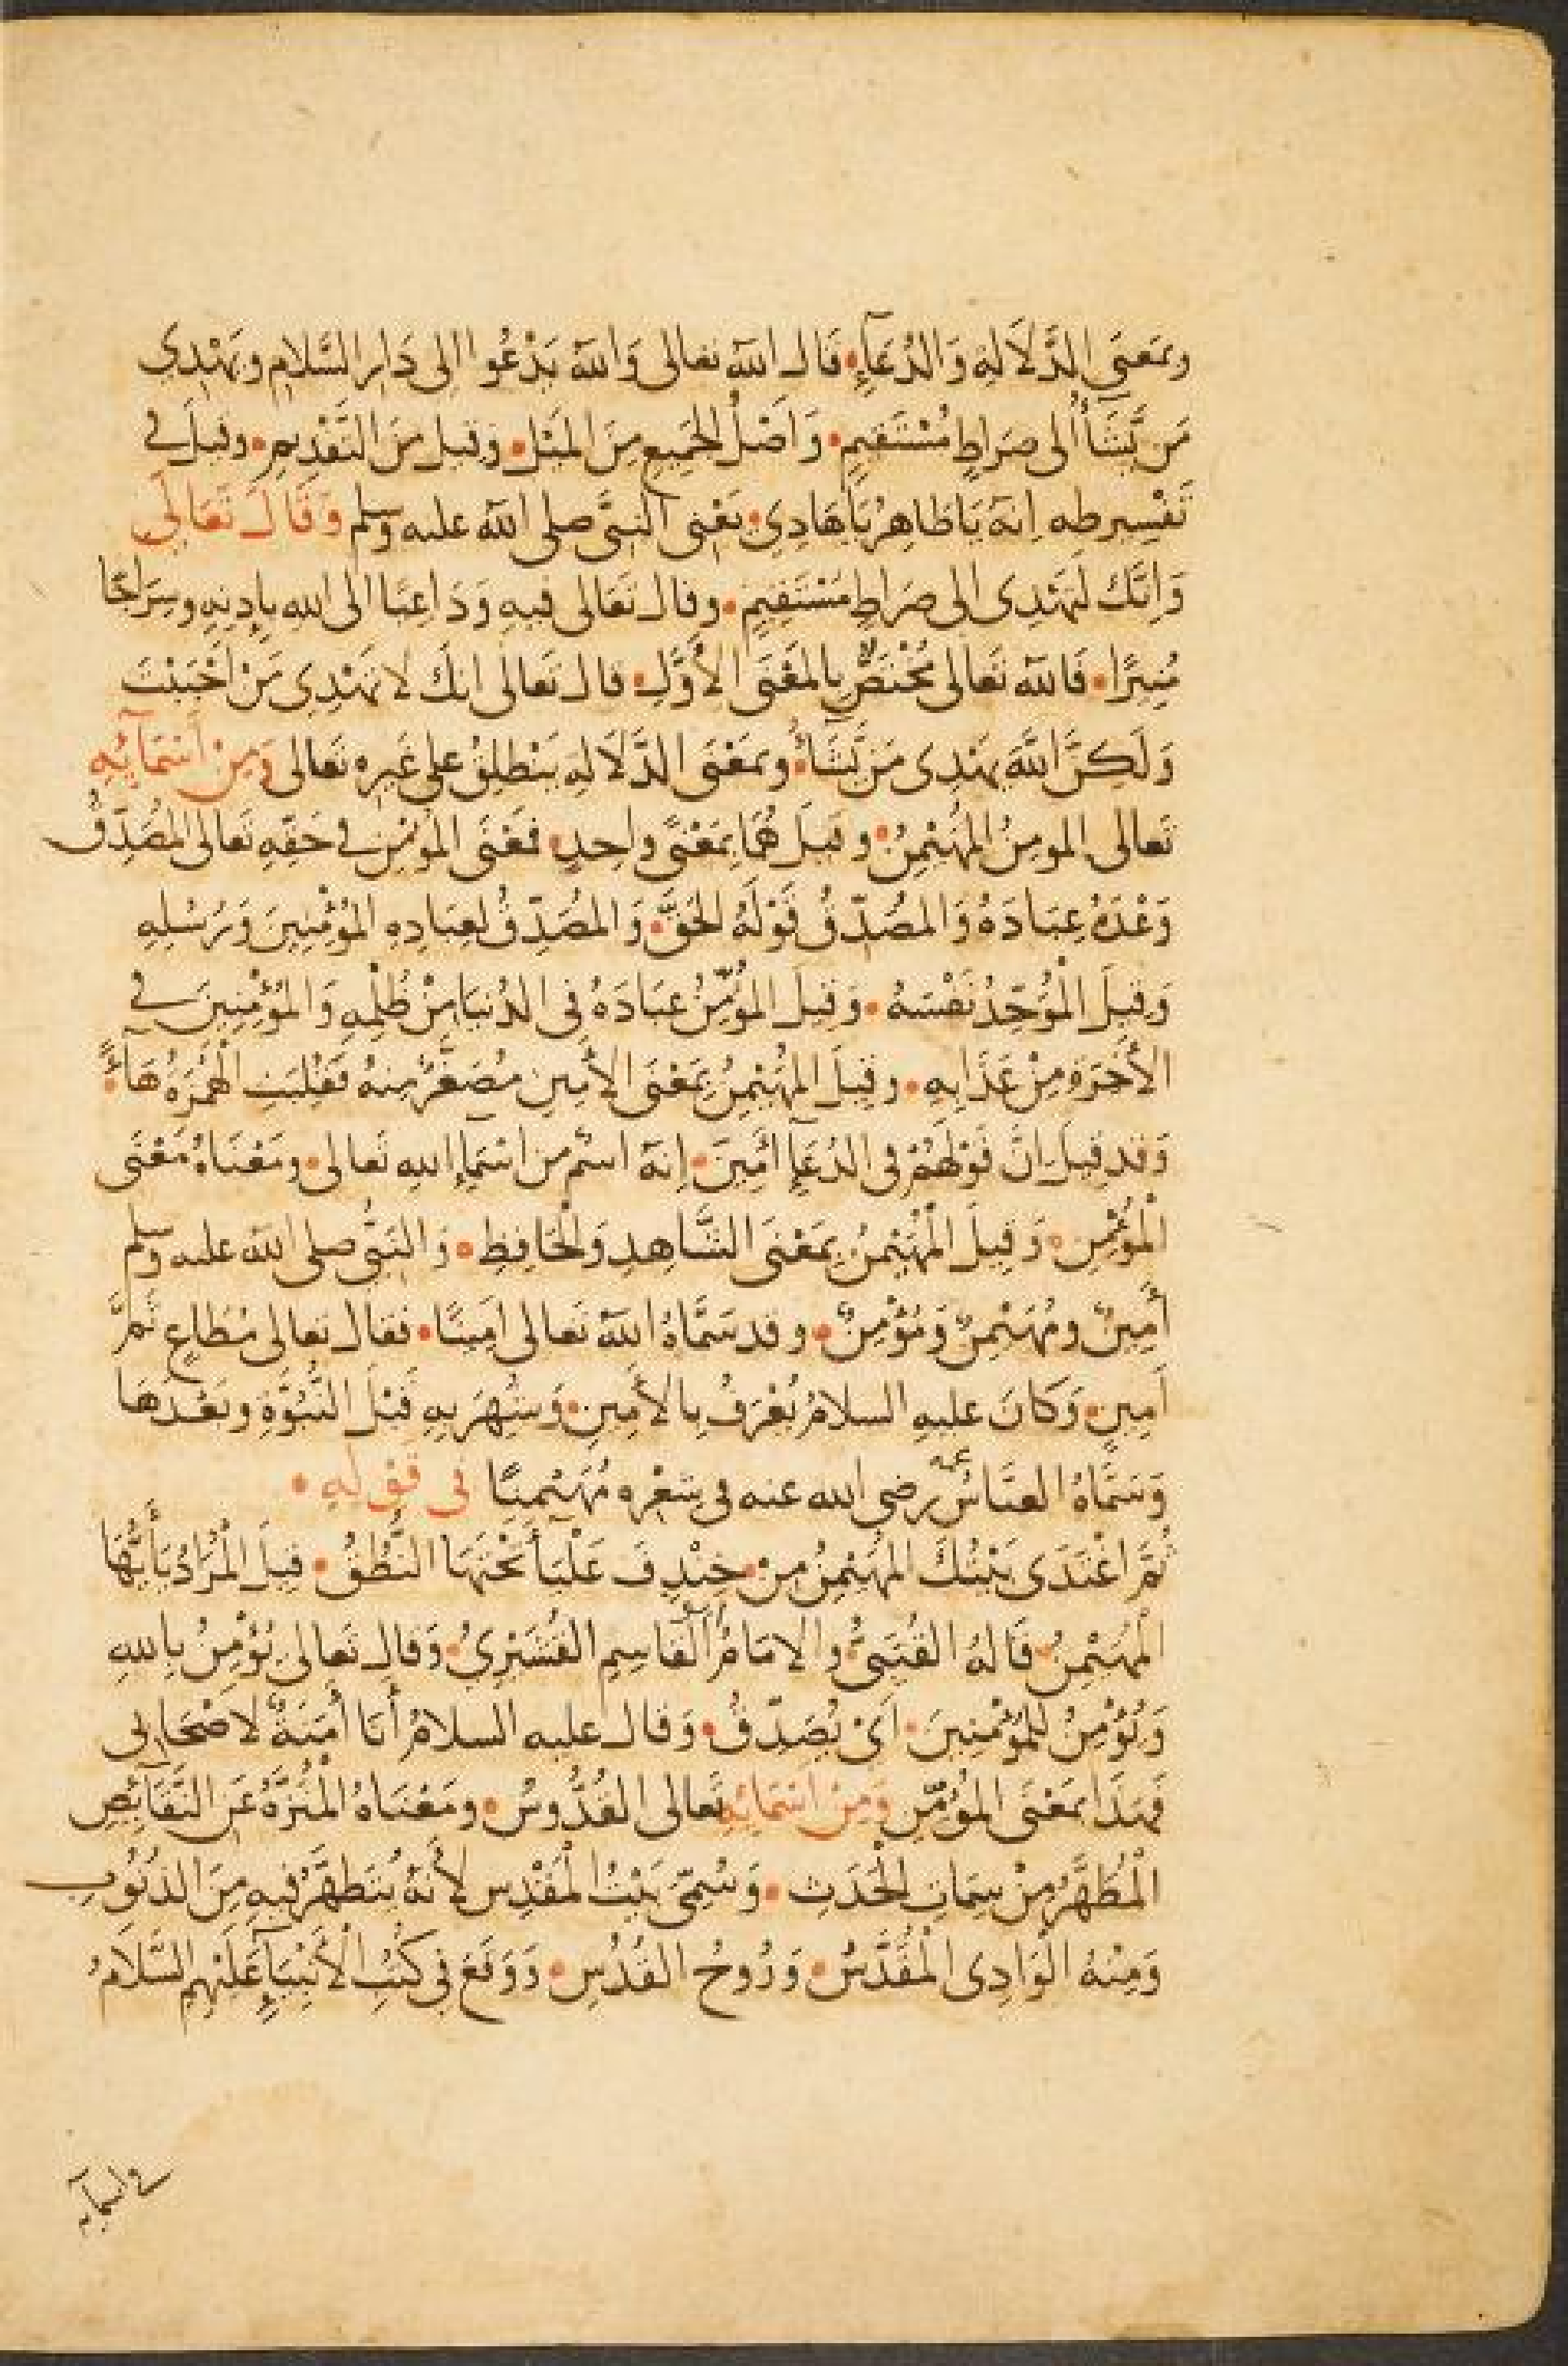 وبمَعنَى الدَّلَالَةِ وَالدُّعَآءِ • قَالَ اللهُ تعالى وَاللهُ يَدْعُوا الى دَارِ السَّلامِ ويَهْدِي
مَن يَّشَآءُ الى صِرَاطٍ مُسْتَقيمٍ • وَاصْلُ الجَميعِ مِنَ المَيْلِ • وقيل مِنَ التَّقْدِيمِ • وقيلَ في
تَفْسِير طه اِنهُ يَا طَاهِرُ يَا هَادِي • يَعْنِى النبيَّ صلى الله عليه وسلم وَقَالَ تَعَالَى
وَاِنَّكَ لتَهْدِى الى صِرَاطٍ مُسْتَقِيمٍ • وقال تَعَالى فيهِ وَدَاعِيًا الى اللهِ بِاِذنِهِ وسِرَاجًا
مُنِيرًا • فَاللهُ تَعَالَى مُخْتَصٌّ بِالمَعْنَى الأَوَّلِ • قال تَعالى انكَ لا تَهْدِى مَنْ احْبَبْتَ
وَلَكِنَّ اللهَ يَهْدِى مَن يَّشَآءُ • وبمَعْنَى الدَّلَالَةِ يَنْطَلِقُ على غَيرِهِ تَعالى وَمِنْ أسْمَآئِهِ
تَعالى المومِنُ المُهَيْمِنُ • وقيلَ هُمَا بِمَعْنًى واحِدٍ • فمَعْنَى المؤمِنِ في حَقِّهِ تَعالى المُصَدِّقُ
وَعْدَهُ عِبَادَهُ وَالمصُدِّقُ قَوْلَهُ الحَقَّ • وَالمصُدِّقُ لعِبَادِهِ المُؤْمِنِينَ وَرُسُلِهِ
وَقيلَ الْمُوَحِّدُ نَفْسَهُ • وَقيلَ المؤَمِّنُ عِبَادَهُ فِى الدُنيَا مِنْ ظُلْمِهِ وَالمُؤْمِنِينَ في
الأَخِرَةِ مِنْ عَذَابِهِ • وقِيلَ المُهَيْمِنُ بِمَعْنَى الأَمِينِ مُصَغَّرٌ مِنهُ فَقُلِبَتِ الْهَمْزَةُ هَاءً •
وَقد قِيلَ انَّ قَوْلَهُمْ فى الدُعَآءِ آمِينَ • اِنهُ اسْمٌ من اسْمَاءِ اللهِ تَعالى • ومَعْنَاهُ مَعْنَى
الْمُؤْمِنِ • وَقِيلَ الْمُهَيْمنُ بِمَعْنَى الشَّاهِدِ وَالْحَافِظِ • وَالنَبيُّ صلى الله عليه وسلم
أَمِينٌ ومُهَيْمِنٌ وَمُؤْمِنٌ • وقد سَمَّاهُ اللهُ تَعالى اَمِينًا • فقال تعالى مُطَاعٍ ثَمَّ
اَمِينٍ • وَكَانَ عليهِ السلامُ يُعْرَفُ بِالأَمِينِ • وَشُهِرَ بِهِ قَبْلَ النُّبُوَّةِ وبَعْدَهَا
وَسَمَّاهُ العبَّاسُ عمه رضى الله عنه فِى شِعْرِهِ مُهَيْمِنًا فى قَوْلِهِ •
ثُمَّ اغْتَدَى بَيْتُكَ المُهَيْمِنُ مِنْ • خِنْدِفَ عَلْيَآءَ تَحْتَهَا النُّطُقُ • قِيلَ الْمُرَادُ يَا أَيُّهَا
الْمُهَيْمِنُ • قَالهُ القُتَبِىُّ والامَامُ اَبُو القَاسِمِ القُشَيْرِيُ • وَقال تَعالى يُؤْمِنُ بِاللهِ
وَيُؤْمِنُ للمُؤْمِنِينَ • اَىْ يُصَدِّقُ • وَقال عليه السلامُ أنَا أَمَنَةٌ لاَصْحَابِى
فَهَذَا بمَعْنَى المؤَمِّنِ وَمِنْ اسْمَائِهِ تَعالى القُدُّوسُ • ومَعْنَاهُ المُنَزَّهُ عَنِ النَّقَآئِصِ
المُطَهَّرُ مِنْ سِمَاتِ الْحَدَثِ • وَسُمِّىَ بَيْتُ الْمَقْدِسِ لأنَهُ يُتَطَهَّرُ فيهِ مِنَ الذنُوبِ
وَمِنْهُ الْوَادِى الْمُقَدَّسُ • وَرُوحُ القُدُسِ • وَوَقَعَ فى كُتُبِ الأَنْبِيَآءِ عَلَيْهِمِ السَّلَامُ
في اسمآئه